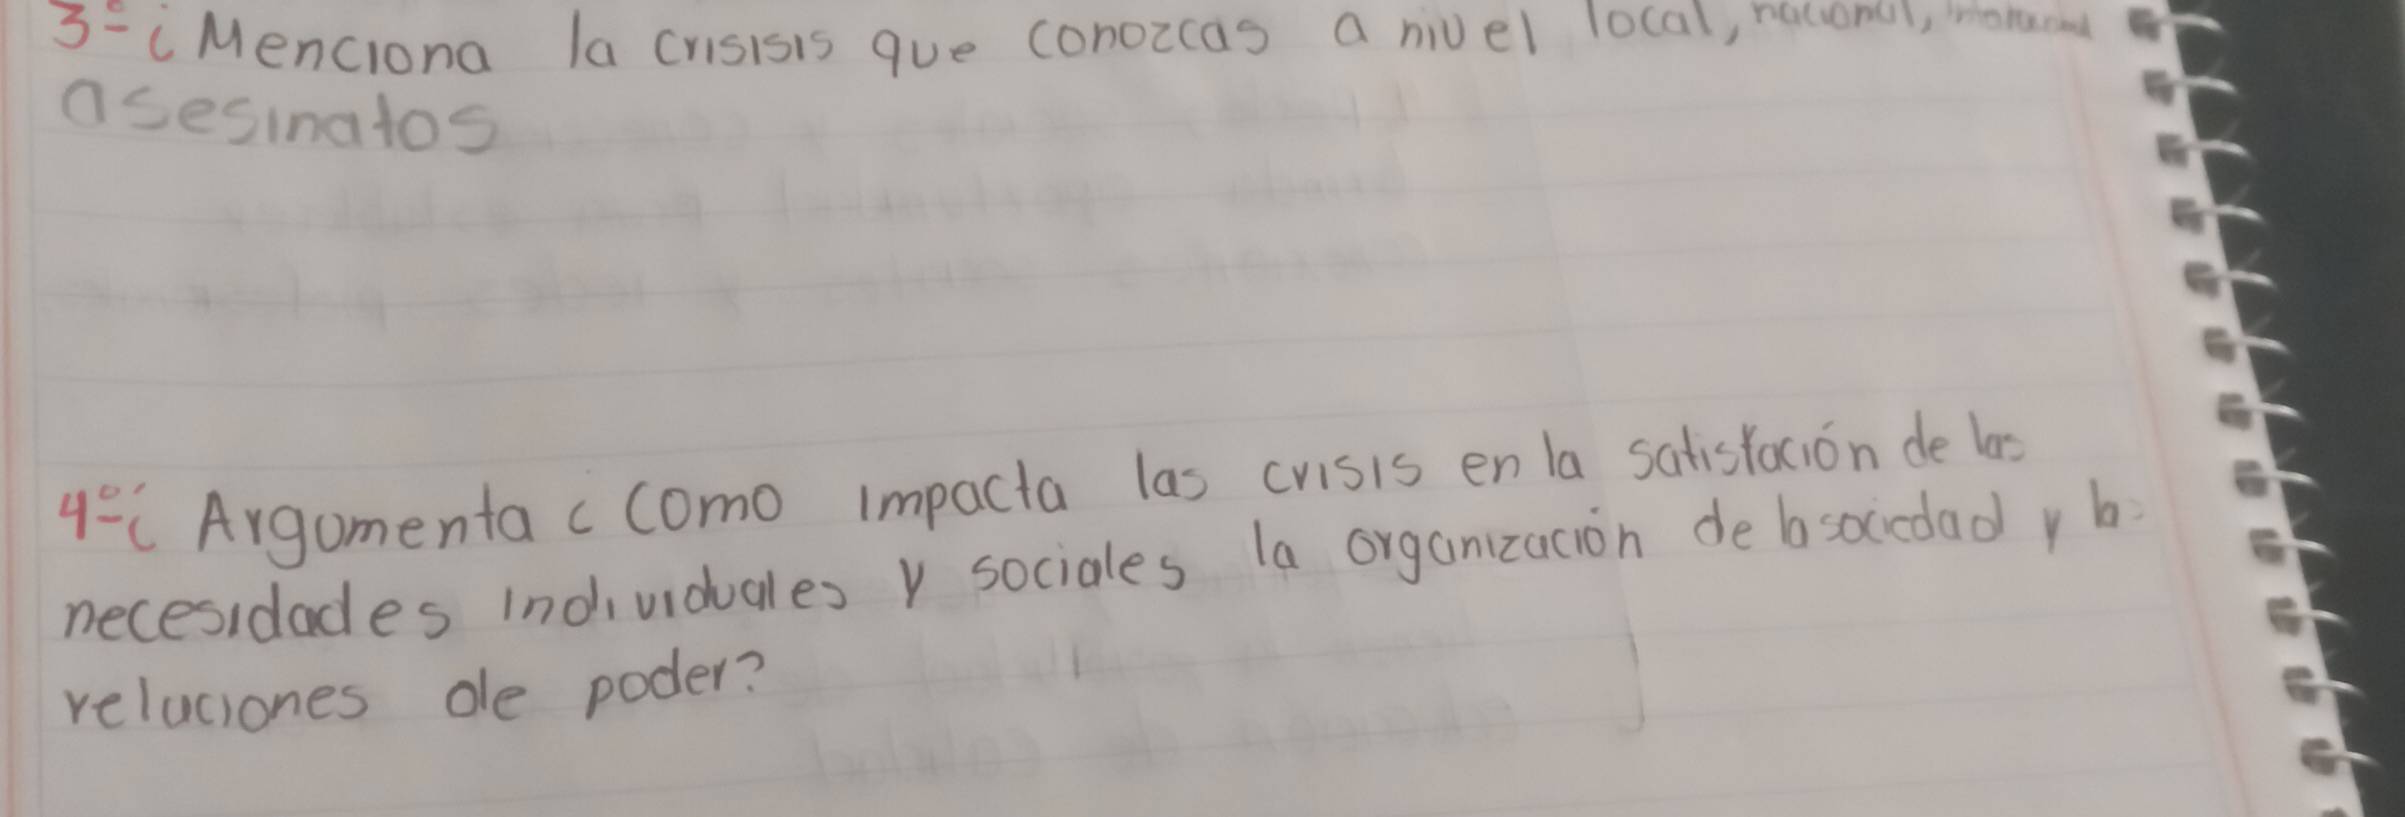 3º ¿ Menciona la crisisis que conozcas a nivel local, nacional,
asesinatos
4º ¿ Argumenta ¿ como impacta las crisis en la satisfación de las
necesidades individuales y sociales la organización de la sociedad y la
relaciones de poder?